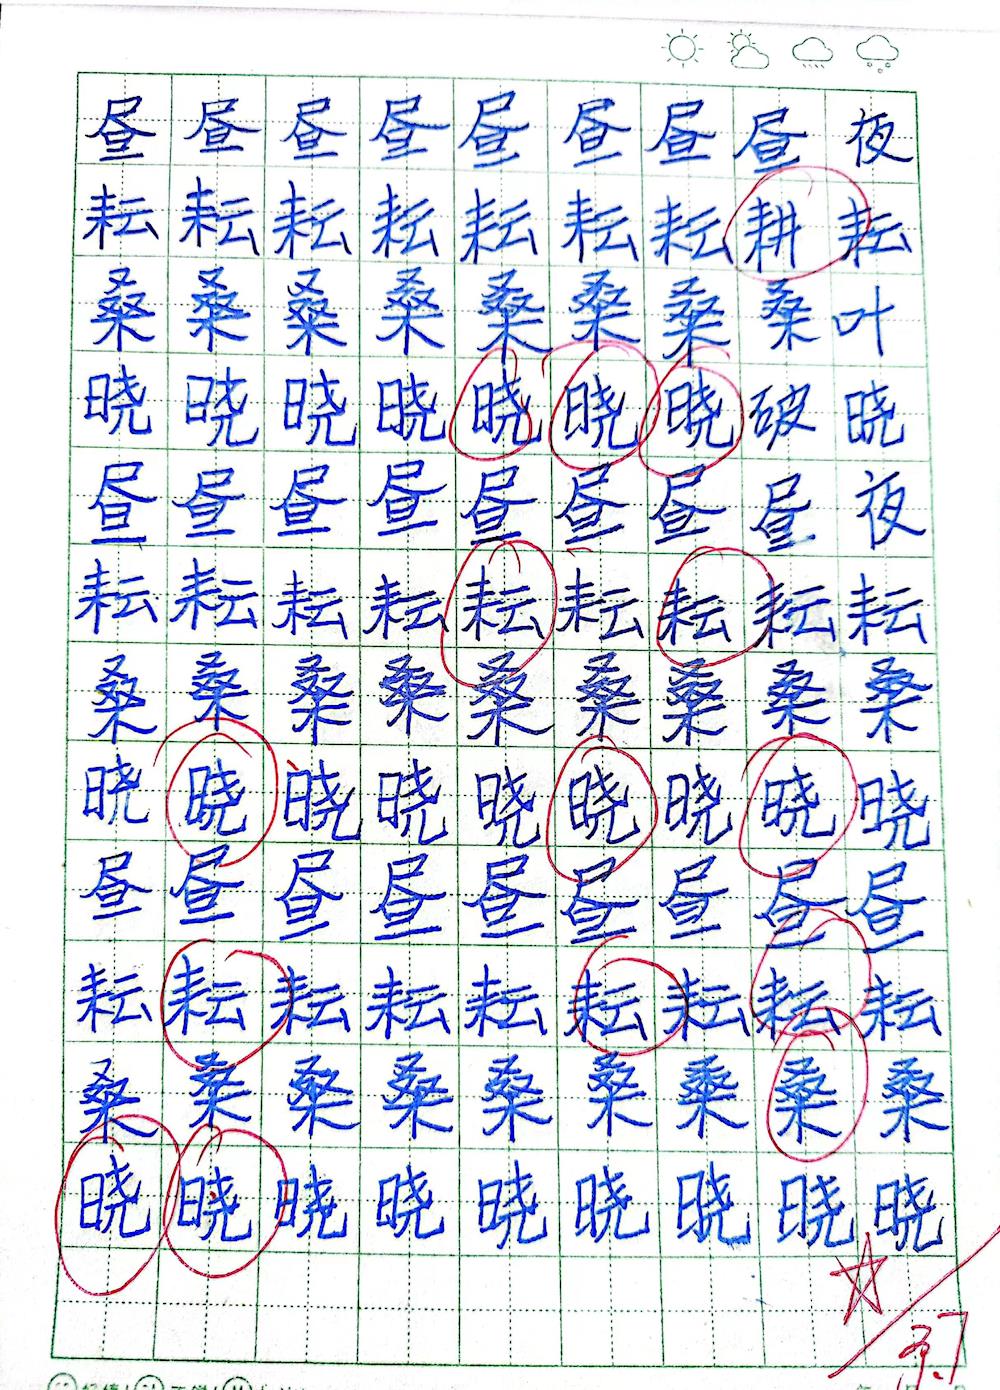 昼昼昼昼昼昼昼昼夜
耘耘耘耘耘耘耘耕耘
桑桑桑桑桑桑桑桑叶
晓晓晓晓晓晓晓破晓
昼昼昼昼昼昼昼昼夜
耘耘耘耘耘耘耘耘耘
桑桑桑桑桑桑桑桑桑
晓晓晓晓晓晓晓晓晓
昼昼昼昼昼昼昼昼昼
耘耘耘耘耘耘耘耘耘
桑桑桑桑桑桑桑桑桑
晓晓晓晓晓晓晓晓晓